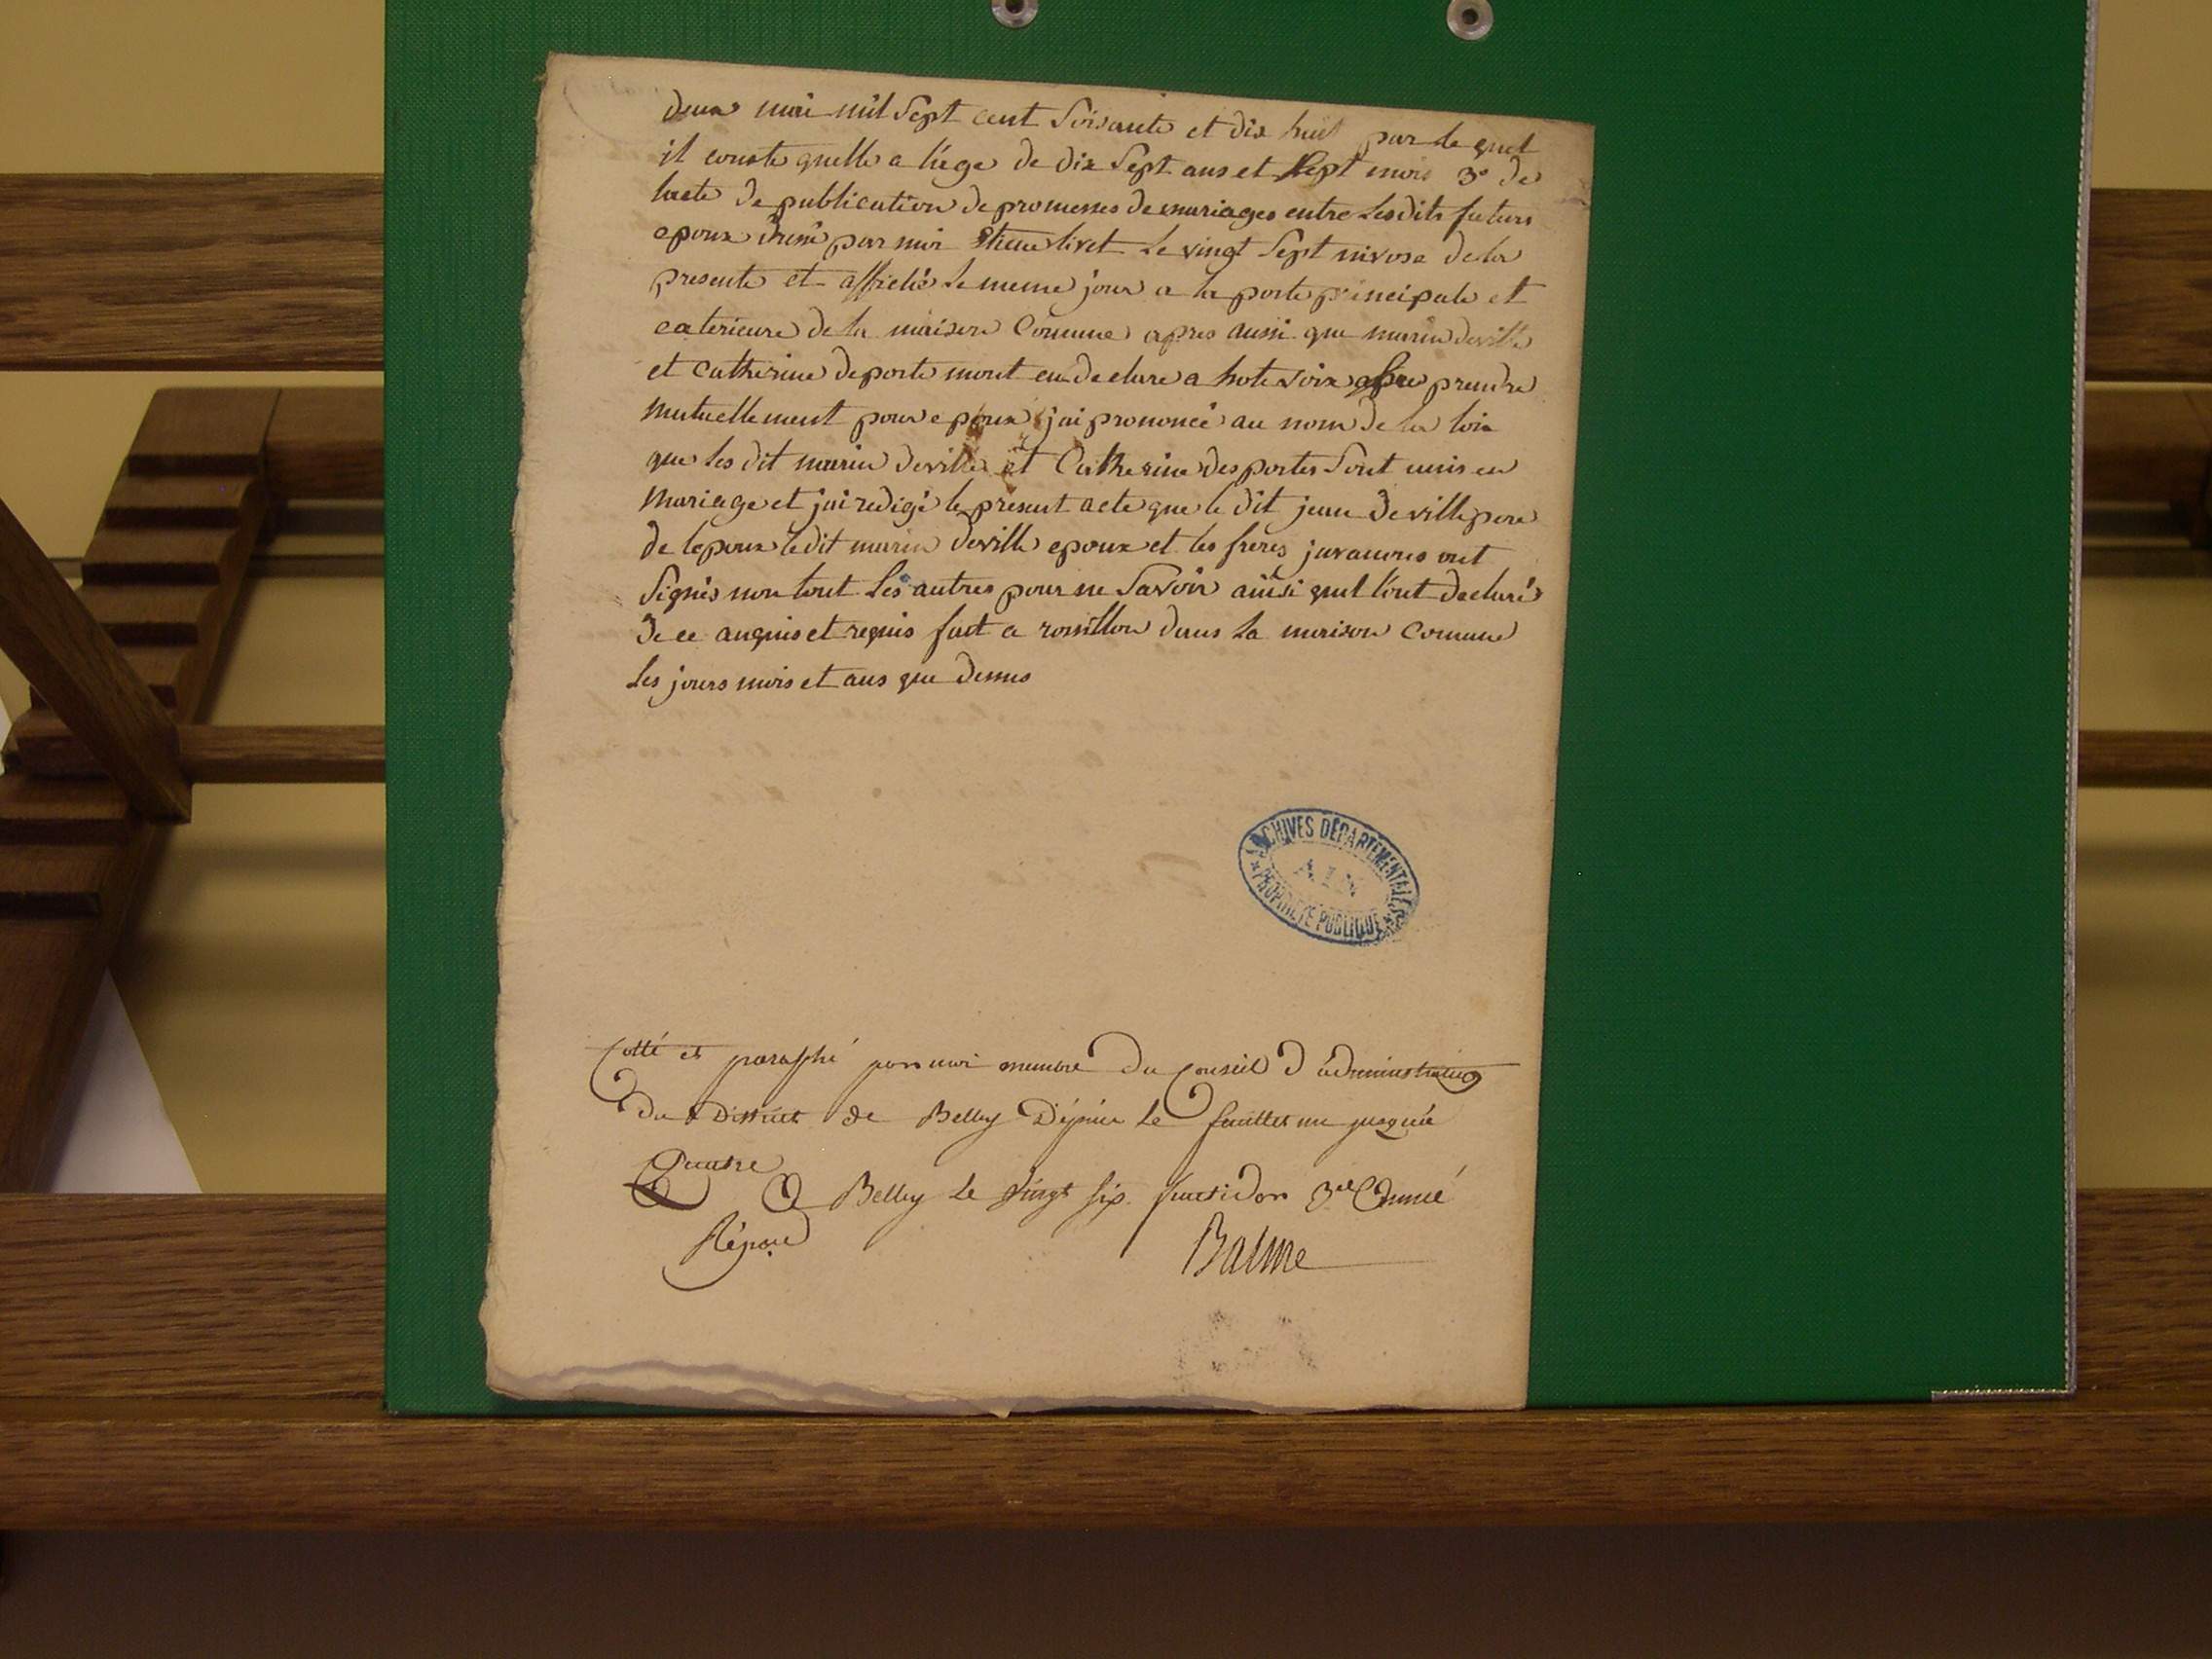 deux mai mil Sept cent Soisante et dix huit par le quel
il conste quelle a l'ége de dix Sept ans et Sept mois 3° de
lacte de publication de promesses de mariages entre les dits futurs
epoux dressé par moi Etiene livet Le vingt Sept nivose de la
presente et affiché le meme jour a la porte principale et
exterieure de la maison Comune apres aussi que marin deville
et Catherine deporte mont en declare a hote voix se prendre
mutuellement pour epoux j'ai prononcé au nom de la loix
que les dit marin deville et Catherine desportes Sont unis en
Mariage et j'ai redigé le present acte que le dit jean deville pere
de lepoux le dit marin deville epoux et les freres juvanons ont
Signés non tout Les autres pour ne Savoir ainsi quil l'ont declaré
de ce anquis et requis fait a rossillon dans la maison Comune
les jours mois et ans que dessus
ARCHIVES DÉPARTEMENTALES
AIN
PROPRIÉTÉ PUBLIQUE
Cotté et paraphé par moi membre du Conseil d'administration
du District de Belley Dépuis le feuillet un jusqu'à
Quatre
A Belley le vingt six fructidor 3me Année
Répou
Balme